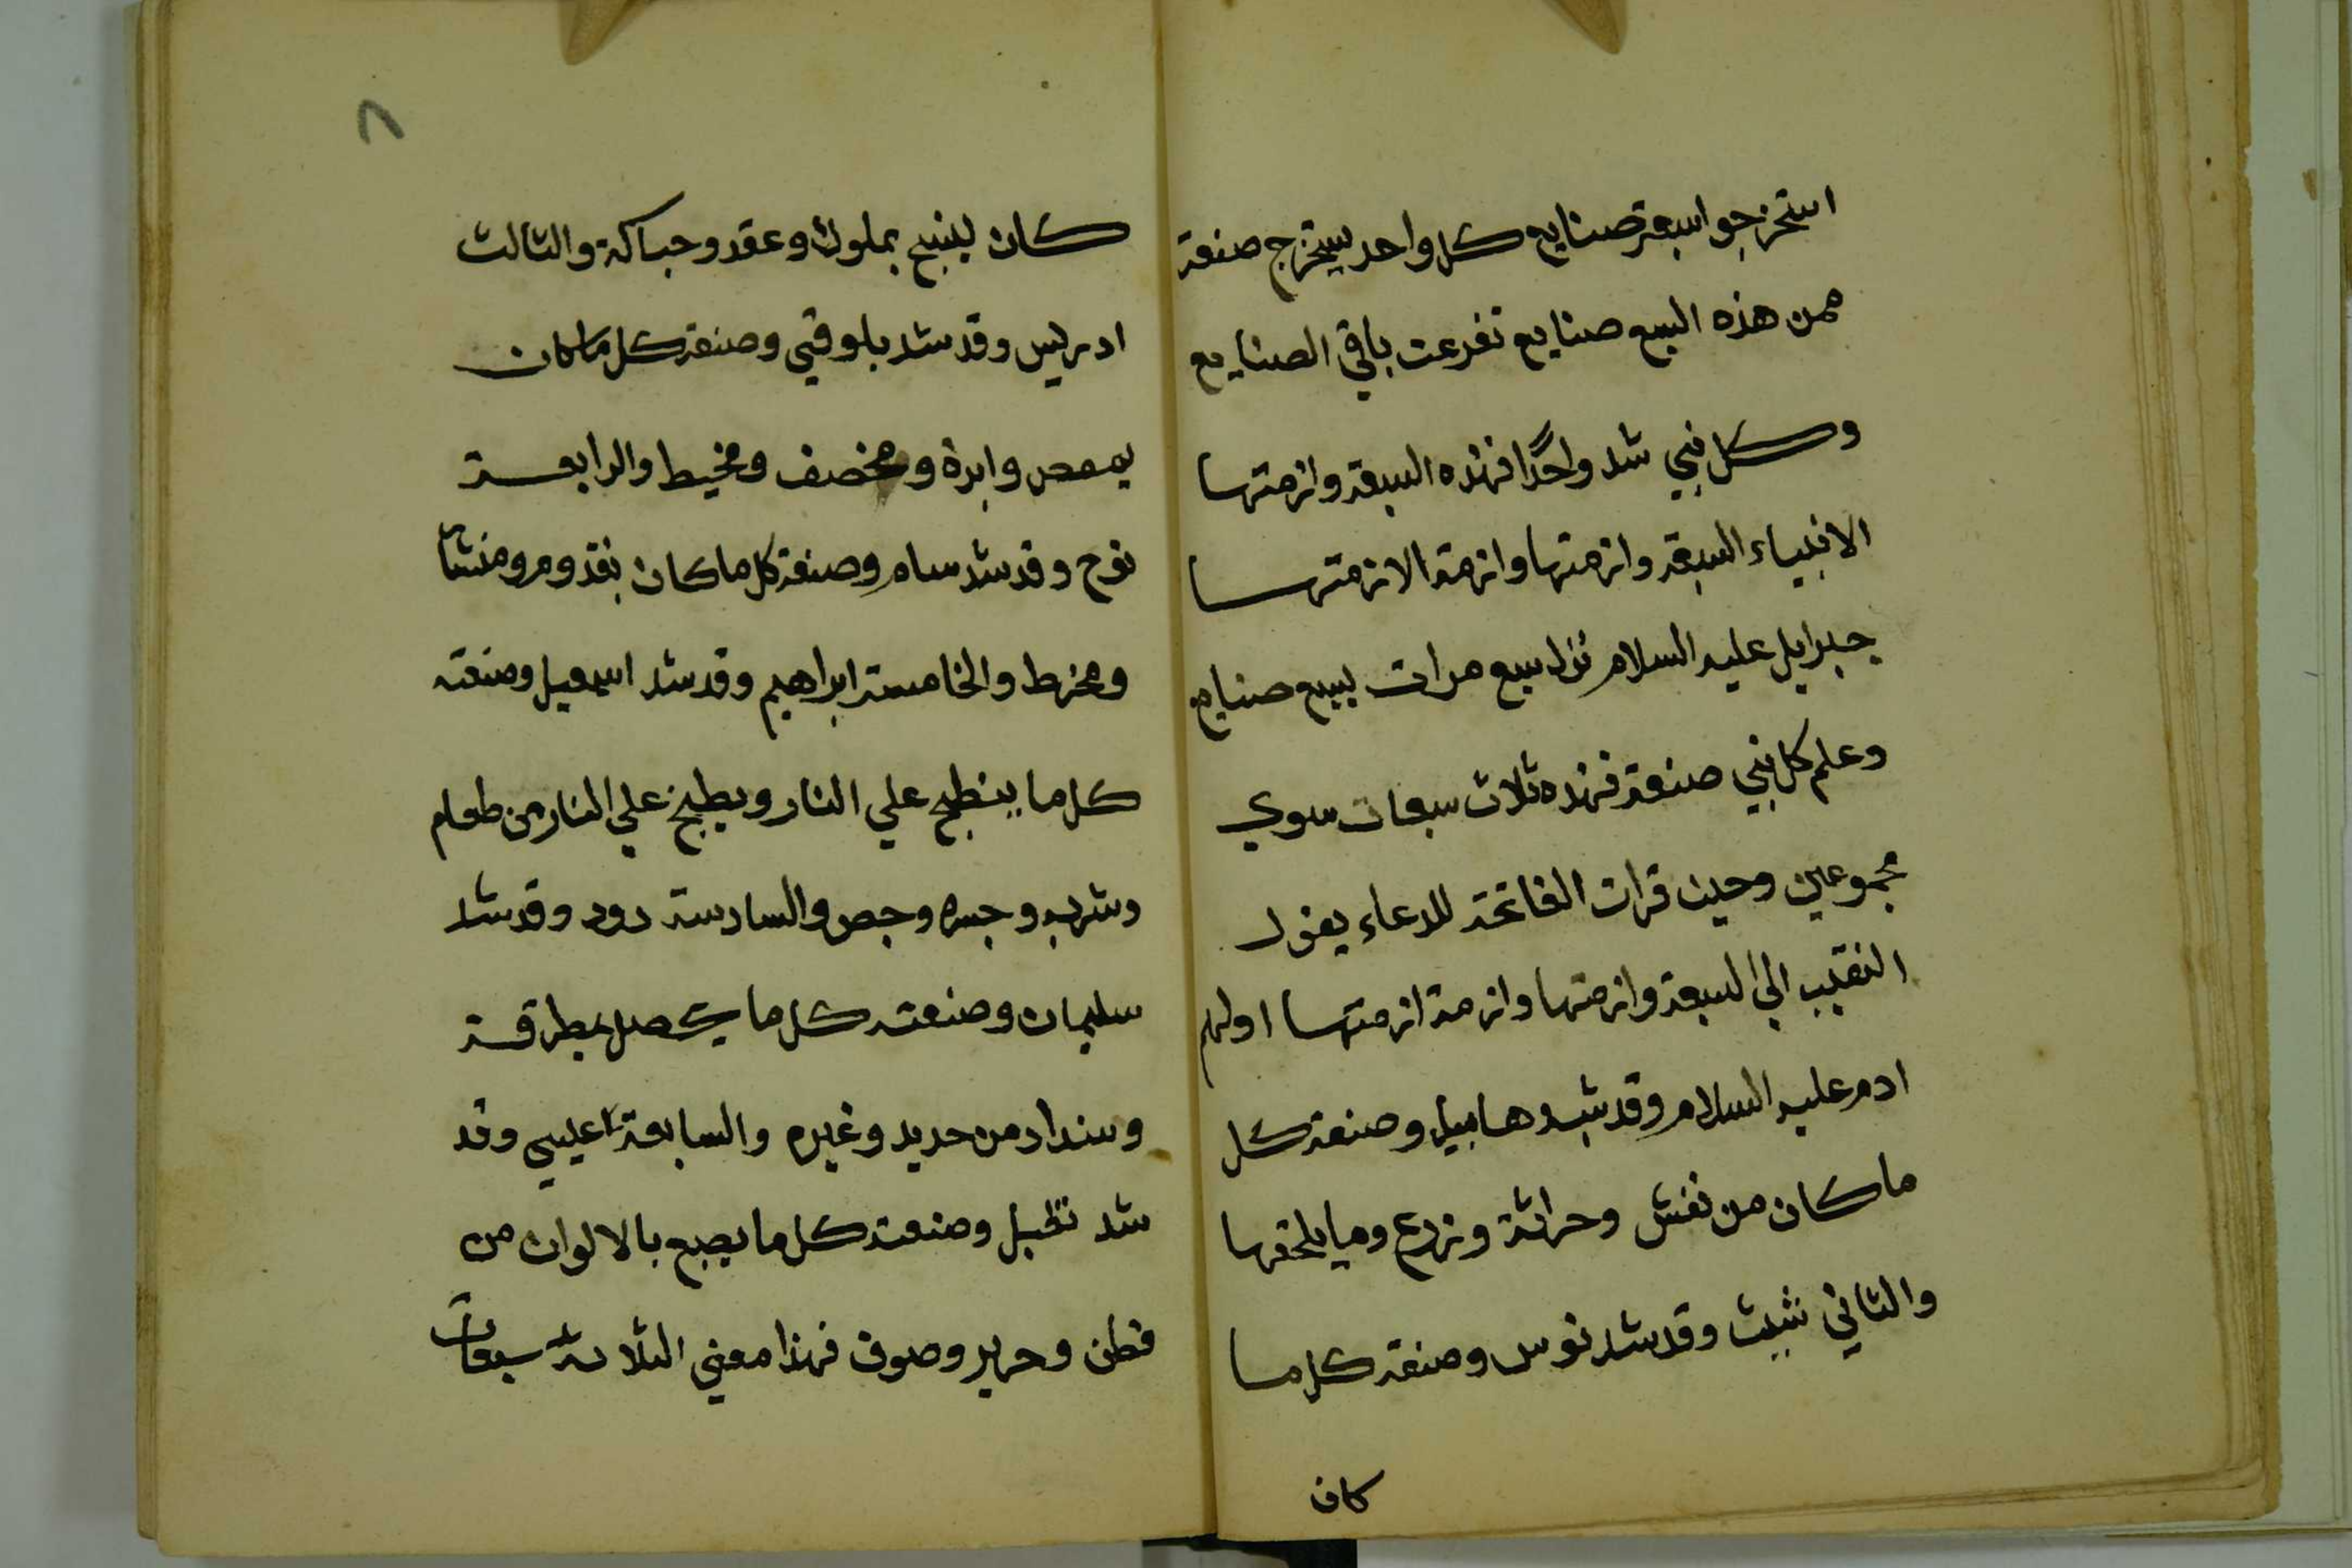 استخرجوا سبعة صنايع كل واحد يستخرج صنعة
فمن هذه السبع صنايع تفرعت باقي الصنايع
وكل نبي شد واحدًا فهذه السبعة وازمتها
الانبياء السبعة وازمتها وازمة الازمتها
جبرايل عليه السلام نزل سبع مرات بسبع صنايع
وعلم كل نبي صنعة فهذه ثلاث سبعات سوي
مجموعين وحين قرات الفاتحة للدعاء يقول
النقيب الي السبعة وازمتها وازمة ازمتها اولهم
ادم عليه السلام وقد شد هابيل وصنعة كل
ما كان من نقش وحراثة وزرع وما يلحقها
والثاني شيث وقد شد نوس وصنعة كل ما
كان
٨
كان ينسج بملوك وعقد وحباكة والثالث
ادريس وقد شد بلوقي وصنعة كل ما كان
بمقص وابرة ومخصف ومخيط والرابعة
نوح وقد شد سام وصنعة كل ما كان بقدوم ومنشار
ومخرط والخامسة ابراهيم وقد شد اسمعيل وصنعته
كل ما ينطبخ علي النار ويطبخ علي النار من طعام
وشرب وجص والسادسة دود وقد شد
سليمان وصنعته كل ما بمطرقة
وسنداد من حديد وغيره والسابعة عليسي وقد
شد وصنعته كل ما يصبغ بالالوان من
قطن وحرير وصوف فهذا معني الثلاثة سبعات